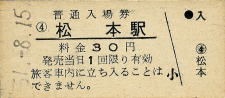 普通入場券
④ 松本駅
料金30円
発売当日1回限り有効
旅客車内に立ち入ることは
できません。
小
●入
④
松本
51-8.15